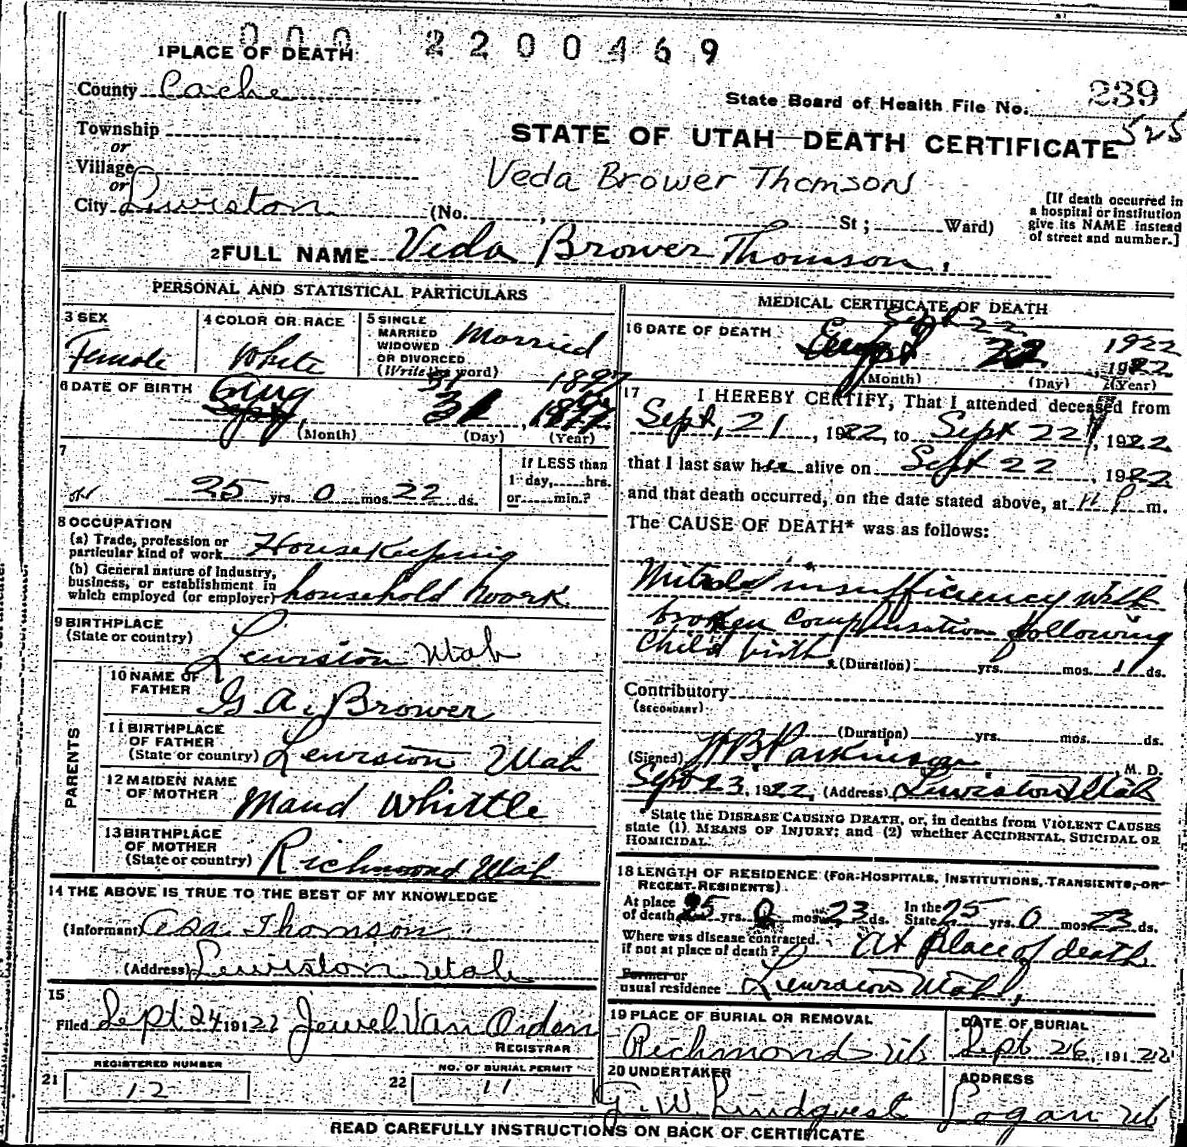 000 2200469
1 PLACE OF DEATH
County Cache
State Board of Health File No. 239
525
Township
or
STATE OF UTAH—DEATH CERTIFICATE
Village
or
Veda Brower Thomson
City Lewiston (No. , St ; Ward)
[If death occurred in
a hospital or institution
give its NAME instead
of street and number.]
2 FULL NAME Veda Brower Thomson,
PERSONAL AND STATISTICAL PARTICULARS
3 SEX
Female
4 COLOR OR RACE
White
5 SINGLE
MARRIED
WIDOWED
OR DIVORCED
(Write the word)
Married
6 DATE OF BIRTH
Aug 31 1897
(Month) (Day) (Year)
7
25 yrs. 0 mos. 22 ds.
If LESS than
1 day, hrs.
or min.?
8 OCCUPATION
(a) Trade, profession or
particular kind of work Housekeeping
(b) General nature of Industry,
business, or establishment in
which employed (or employer) household work
9 BIRTHPLACE
(State or country)
Lewiston Utah
PARENTS
10 NAME OF
FATHER
G. A. Brower
11 BIRTHPLACE
OF FATHER
(State or country) Lewiston Utah
12 MAIDEN NAME
OF MOTHER
Maud Whittle
13 BIRTHPLACE
OF MOTHER
(State or country) Richmond Utah
14 THE ABOVE IS TRUE TO THE BEST OF MY KNOWLEDGE
(Informant) Asa Thomson
(Address) Lewiston Utah
15
Filed Sept 24 19122 Jewel Van Orden
REGISTRAR
REGISTERED NUMBER
21 12
NO. OF BURIAL PERMIT
22 11
MEDICAL CERTIFICATE OF DEATH
16 DATE OF DEATH
Sept 22 1922
22 1922
(Month) (Day) (Year)
17 I HEREBY CERTIFY, That I attended deceased from
Sept, 21, 1922, to Sept 22, 1922
that I last saw her alive on Sept 22, 1922
and that death occurred, on the date stated above, at 11 P m.
The CAUSE OF DEATH* was as follows:
Mitral insufficiency with
broken compensation following
Child birth (Duration) yrs. mos. 11 ds.
Contributory
(SECONDARY)
(Duration) yrs. mos. ds.
(Signed) W B Parkinson M. D.
Sept 23, 1922, (Address) Lewiston Utah
*State the DISEASE CAUSING DEATH, or, in deaths from VIOLENT CAUSES
state (1) MEANS OF INJURY; and (2) whether ACCIDENTAL, SUICIDAL OR
HOMICIDAL.
18 LENGTH OF RESIDENCE (FOR HOSPITALS, INSTITUTIONS, TRANSIENTS, OR
RECENT RESIDENTS)
At place
of death 25 yrs. 0 mos. 23 ds. In the
State 25 yrs. 0 mos. 23 ds.
Where was disease contracted
if not at place of death? At place of death
Former or
usual residence Lewiston Utah,
19 PLACE OF BURIAL OR REMOVAL
Richmond Ut
DATE OF BURIAL
Sept 26, 19122
20 UNDERTAKER
G. W. Lindquest
ADDRESS
Logan Ut
READ CAREFULLY INSTRUCTIONS ON BACK OF CERTIFICATE